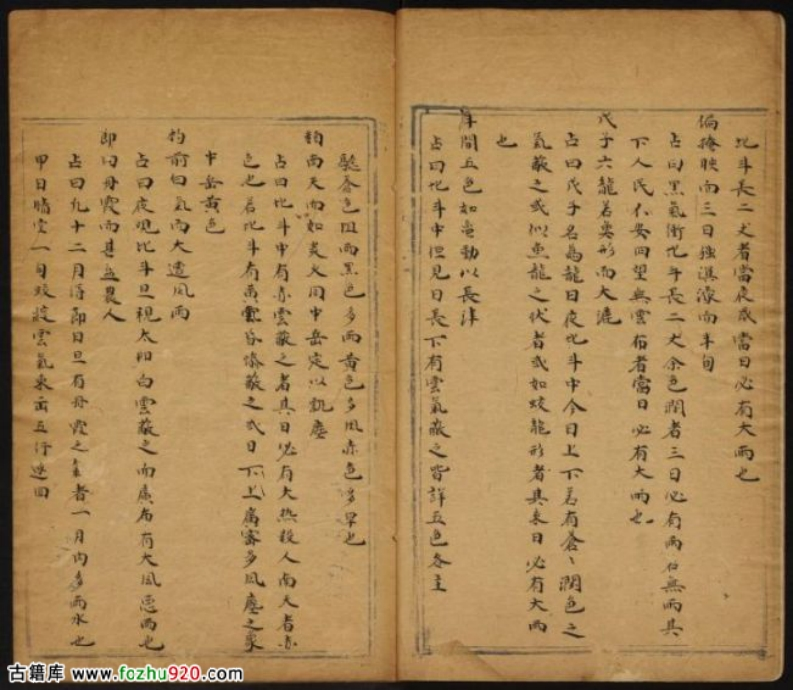 北斗長二丈者當夜或當日必有大雨也
偏掩映向三日強濛向半旬
占曰黑氣衝北斗長二丈余色潤者三日必有雨右無雨其
下人民不安回望無雲布者當日必有大雨也
戊子六龍若異形而大漉
占曰戊子名為龍日夜北斗中今日上下若有蒼〻潤色之
氣蔽之或似魚龍之伏者或如蛟龍形者其來日必有大雨
也
斗間五色如電動以長津
占曰北斗中但見日長下有雲氣蔽之皆詳五色各主
蒼色阻雨黑色多雨黃色多風赤色多旱也
南天而如炎火同中岳定以飢塵
占曰北斗中有赤雲蔽之者其日必有大热殺人南天者赤
色也若北斗有黃雲昏慘蔽之或日下上属害多風塵之象
中岳黃色
前白氣而大遭風雨
占曰夜观北斗旦視太阳白雲蔽之而廣布有大風恶雨也
即曰丹霞而甚盈農人
占曰九十二月得節日旦有丹霞之氣者一月内多雨水也
甲日晴空一旬蛟發雲氣東西五行迷四
古籍库 www.fozhu920.com